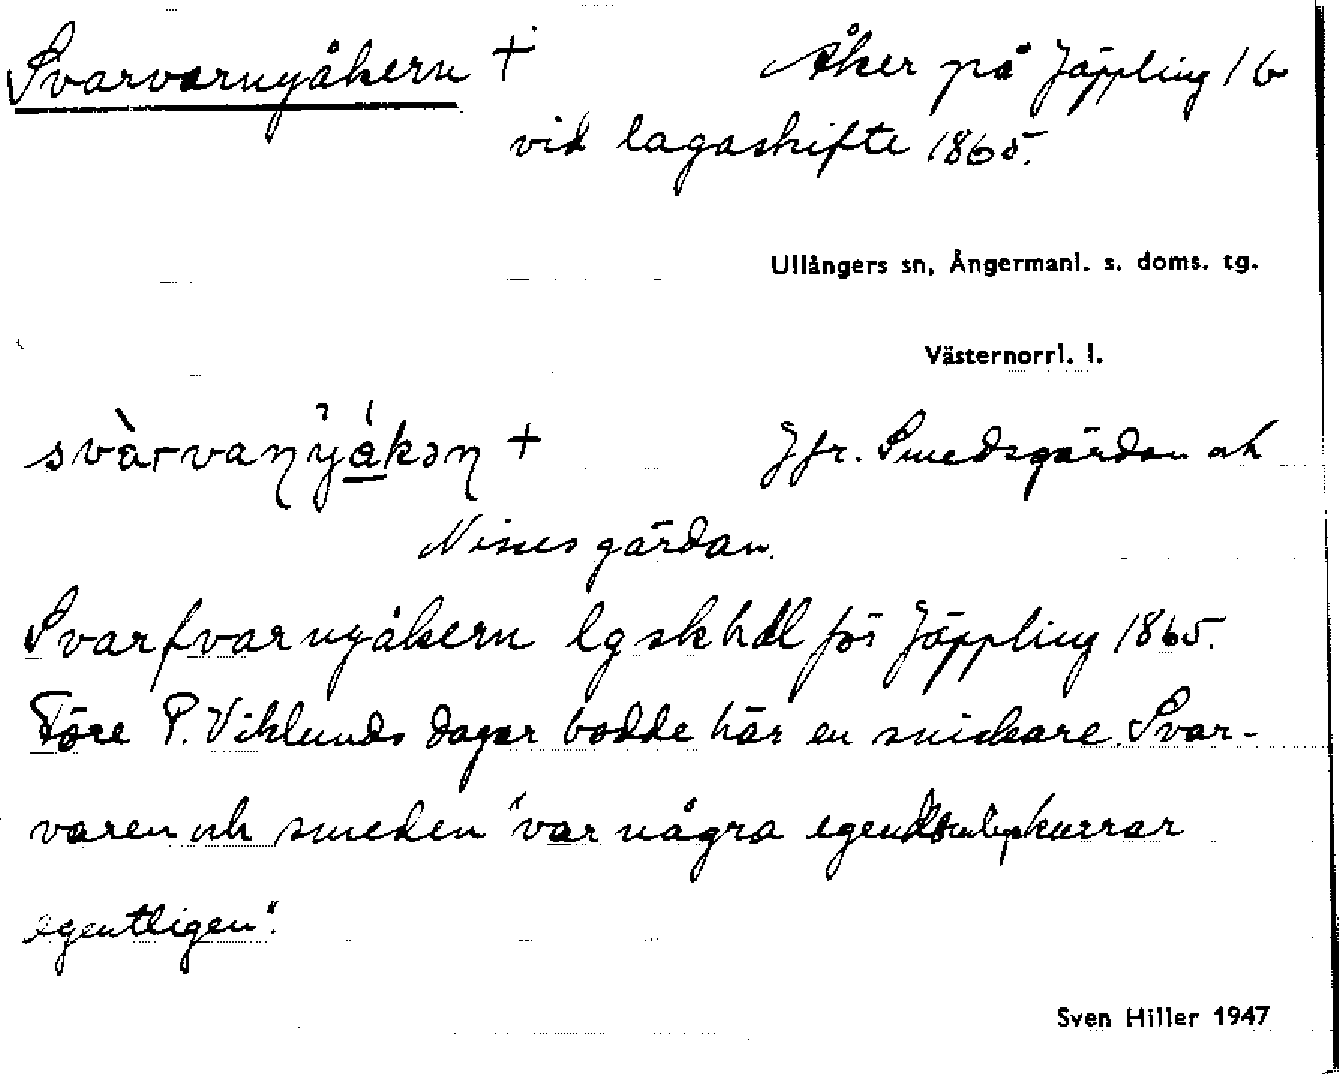 Svarvarnyåkern +
Åker på Jäppling 1b
vid lagaskifte 1865.
Ullångers sn, Ångermanl. s. doms. tg.
Västernorrl. l.
svàrvaɳy̆́åkəɳ +
Jfr. Smedsgärdan och
Nissesgärdan.
Svarfvarnyåkern lgskhdl för Jäppling 1865.
Före P. Viklunds dagar bodde här en snickare. Svar-
varen och smeden "var några egendomskurrar
egentligen".
Sven Hiller 1947